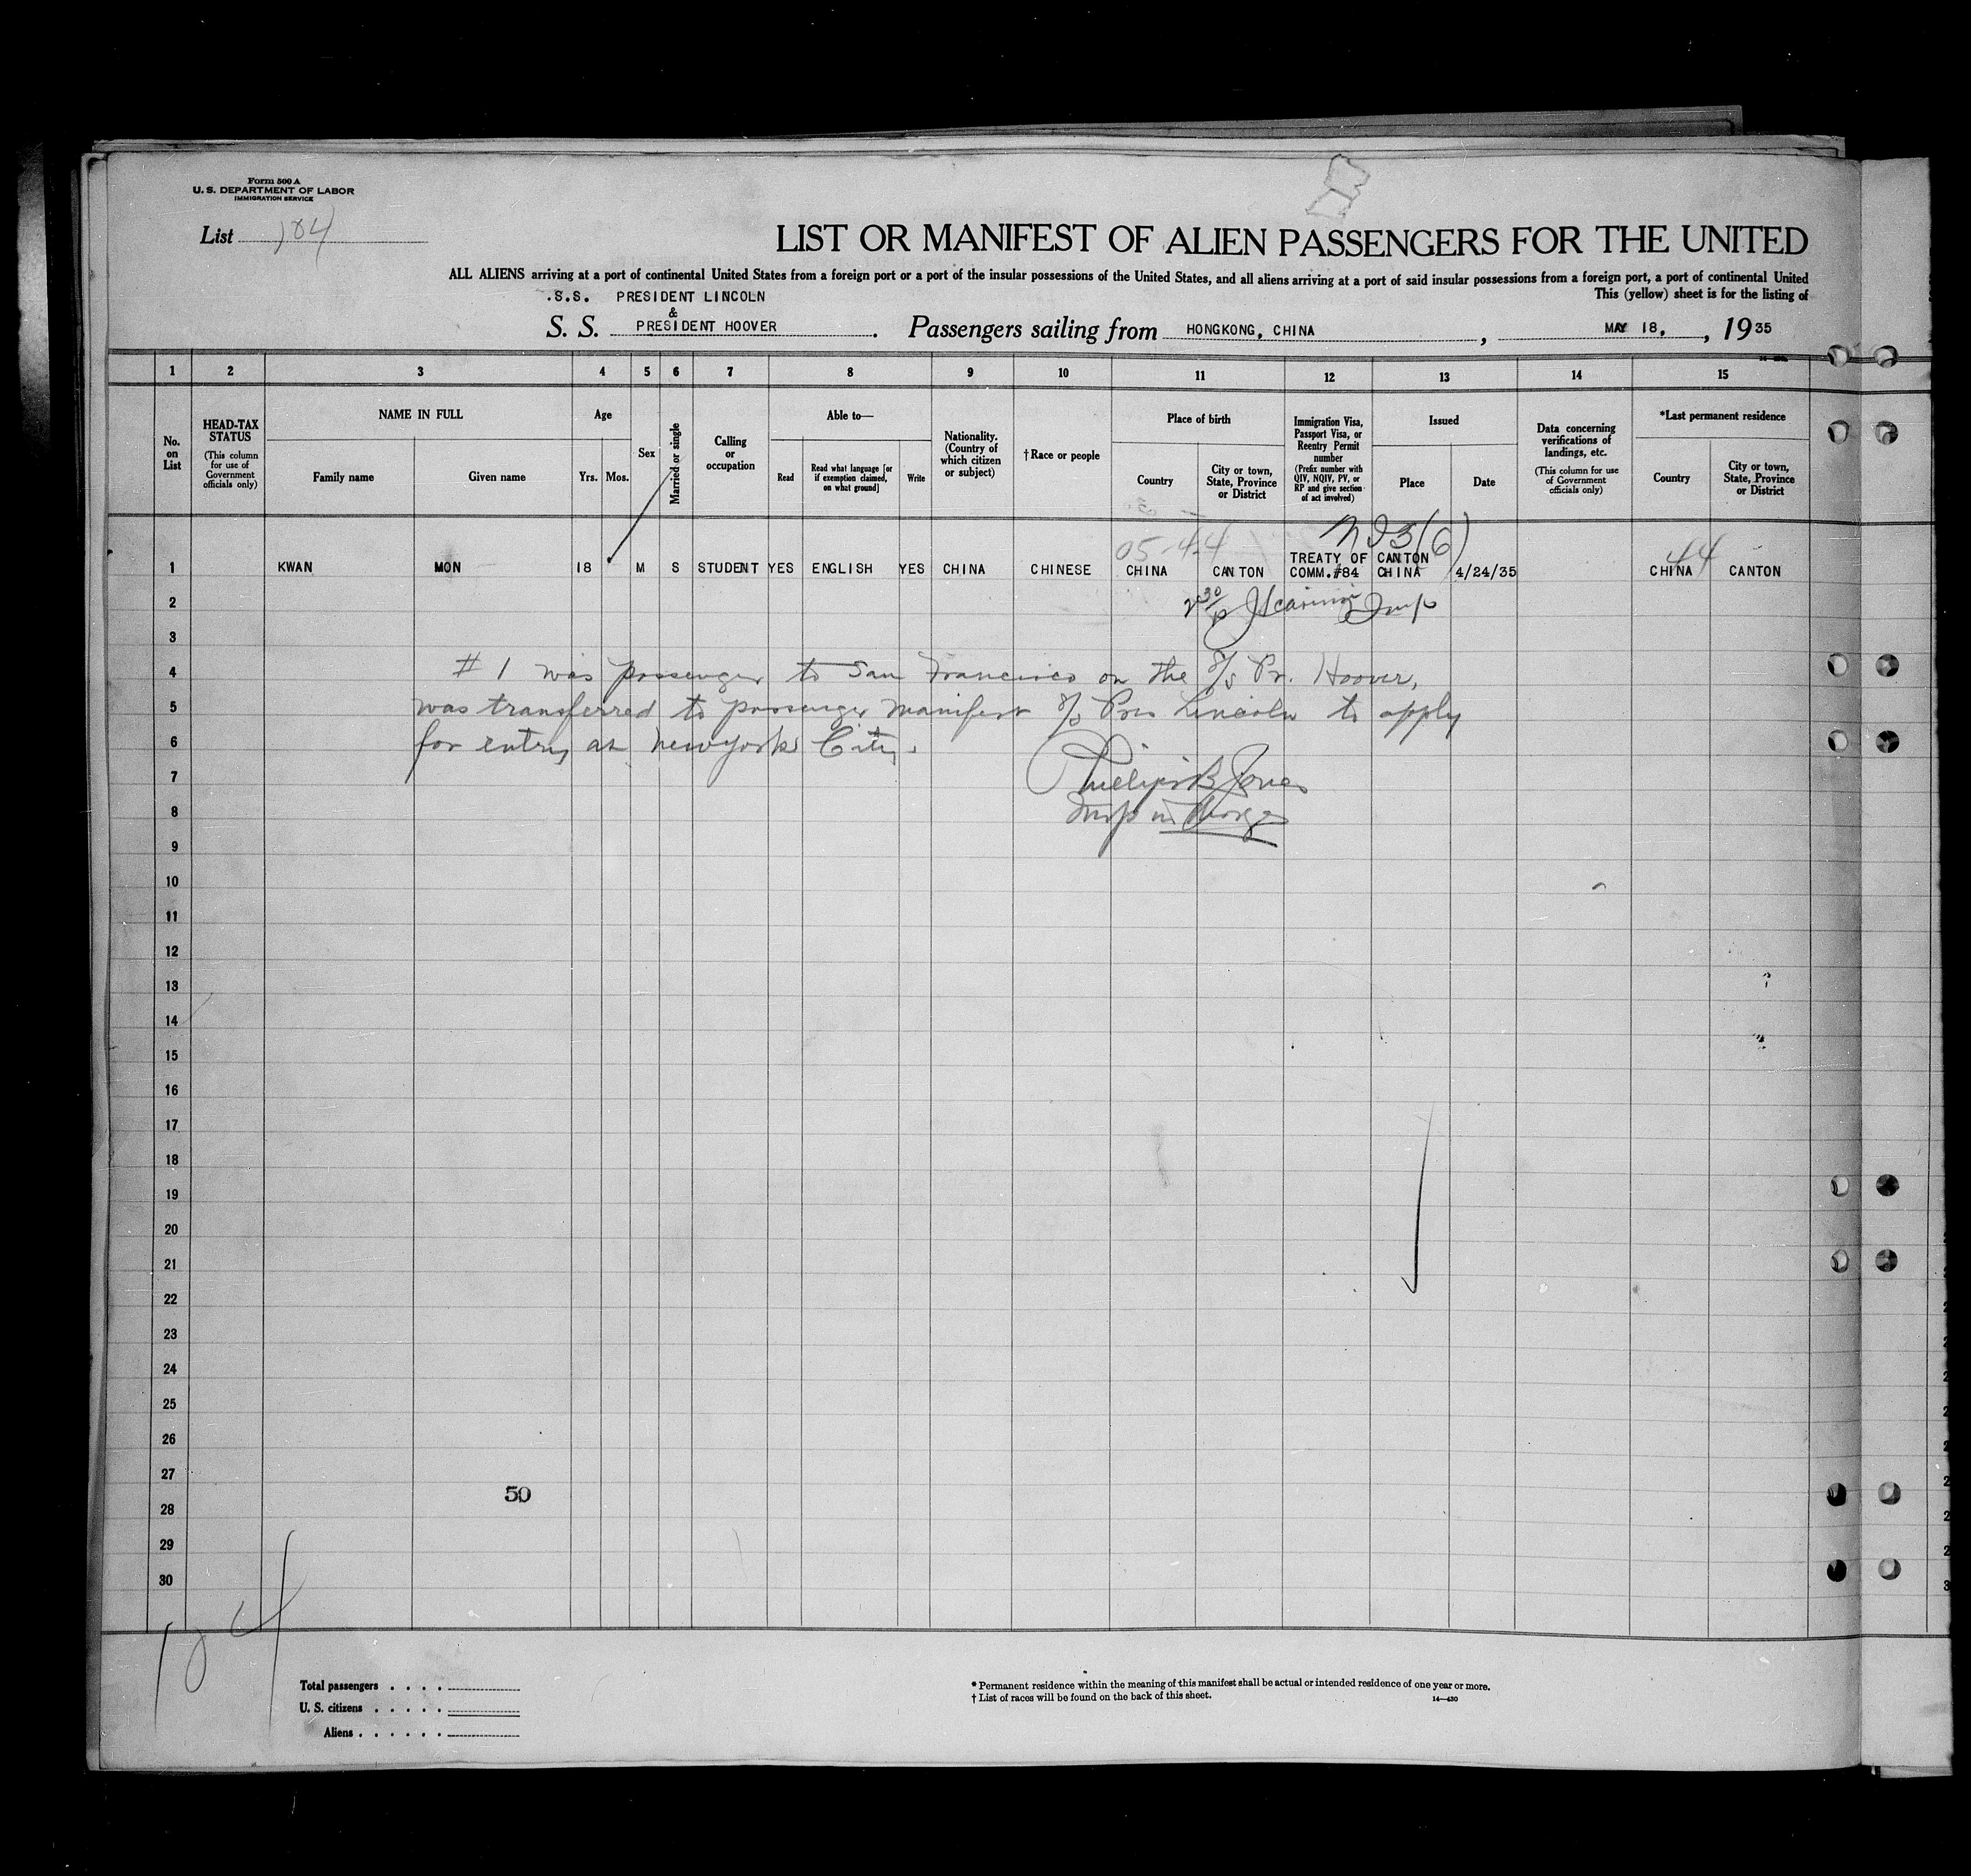 Form 500 A
U. S. DEPARTMENT OF LABOR
IMMIGRATION SERVICE
List 184
LIST OR MANIFEST OF ALIEN PASSENGERS FOR THE UNITED
ALL ALIENS arriving at a port of continental United States from a foreign port or a port of the insular possessions of the United States, and all aliens arriving at a port of said insular possessions from a foreign port, a port of continental United
This (yellow) sheet is for the listing of
.S.S. PRESIDENT LINCOLN
&
S. S. PRESIDENT HOOVER. Passengers sailing from HONGKONG, CHINA, MAY 18, , 1935
1 2 3 4 5 6 7 8 9 10 11 12 13 14 15
No. on List
HEAD-TAX STATUS
(This column for use of Government officials only)
NAME IN FULL
Family name
Given name
Age
Yrs. Mos.
Sex
Married or single
Calling or occupation
Able to—
Read
Read what language [or if exemption claimed, on what ground]
Write
Nationality. (Country of which citizen or subject)
† Race or people
Place of birth
Country
City or town, State, Province or District
Immigration Visa, Passport Visa, or Reentry Permit number
(Prefix number with QIV, NQIV, PV, or RP and give section of act involved)
Issued
Place
Date
Data concerning verifications of landings, etc.
(This column for use of Government officials only)
*Last permanent residence
Country
City or town, State, Province or District
05-44 3(6) 44
TREATY OF CANTON
1 KWAN MON 18 M S STUDENT YES ENGLISH YES CHINA CHINESE CHINA CANTON COMM.#84 CHINA 4/24/35 CHINA CANTON
2
3
4 # 1 was passenger to San Francisco on the S/S Pr. Hoover,
5 was transferred to passenger manifest S/S Pres Lincoln to apply
6 for entry at New York City.
7 Phillips B Jones
8 Insp in Charge
9
10
11
12
13
14
15
16
17
18
19
20
21
22
23
24
25
26
27
50
28
29
30
184
Total passengers . . . .
U. S. citizens . . . . .
Aliens . . . . . .
* Permanent residence within the meaning of this manifest shall be actual or intended residence of one year or more.
† List of races will be found on the back of this sheet.
14—430